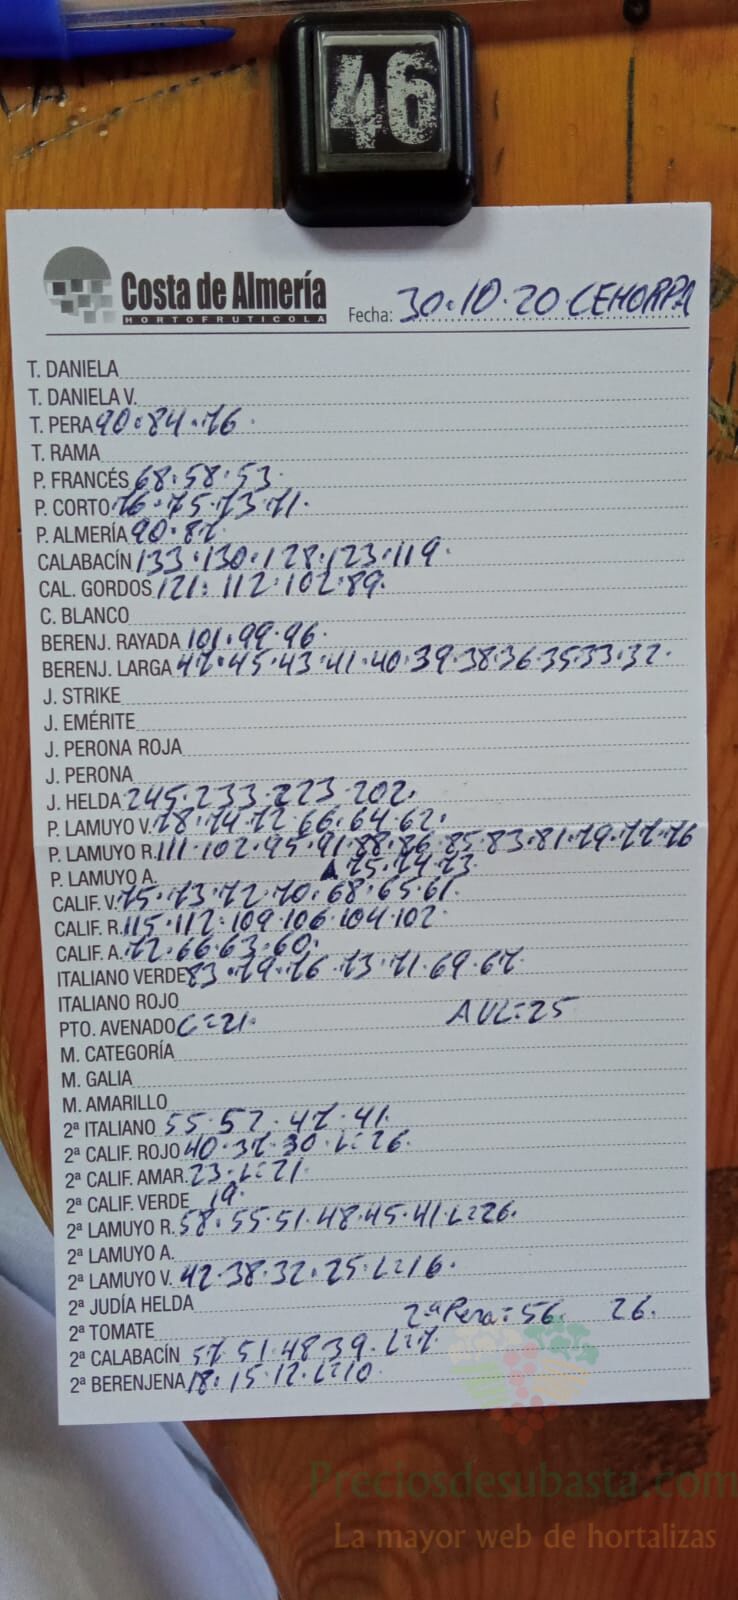 46
Costa de Almería
HORTOFRUTICOLA
Fecha: 30·10·20 CEHORPA
T. DANIELA
T. DANIELA V.
T. PERA 90·84·76·
T. RAMA
P. FRANCÉS 68·58·53·
P. CORTO 76·75·73·71·
P. ALMERÍA 90·87·
CALABACÍN 133·130·128·123·119·
CAL. GORDOS 121·112·102·89·
C. BLANCO
BERENJ. RAYADA 101·99·96·
BERENJ. LARGA 47·45·43·41·40·39·38·36·35·33·32·
J. STRIKE
J. EMÉRITE
J. PERONA ROJA
J. PERONA
J. HELDA 245·233·223·202·
P. LAMUYO V. 78·74·72·66·64·62·
P. LAMUYO R. 111·102·95·91·88·86·85·83·81·79·77·76
P. LAMUYO A. 75·74·73·
CALIF. V. 75·73·72·70·68·65·61·
CALIF. R. 115·112·109·106·104·102·
CALIF. A. 72·66·63·60·
ITALIANO VERDE 83·79·76·73·71·69·67·
ITALIANO ROJO
PTO. AVENADO C=21· AVL=25
M. CATEGORÍA
M. GALIA
M. AMARILLO
2ª ITALIANO 55·52·47·41·
2ª CALIF. ROJO 40·37·30·L=26·
2ª CALIF. AMAR. 23·L=21·
2ª CALIF. VERDE 19·
2ª LAMUYO R. 58·55·51·48·45·41·L=26·
2ª LAMUYO A.
2ª LAMUYO V. 42·38·32·25·L=16·
2ª JUDÍA HELDA
2ª TOMATE 2ªPera=56· 26·
2ª CALABACÍN 57·51·48·39·L=7·
2ª BERENJENA 18·15·12·L=10·
Preciosdesubasta.com
La mayor web de hortalizas